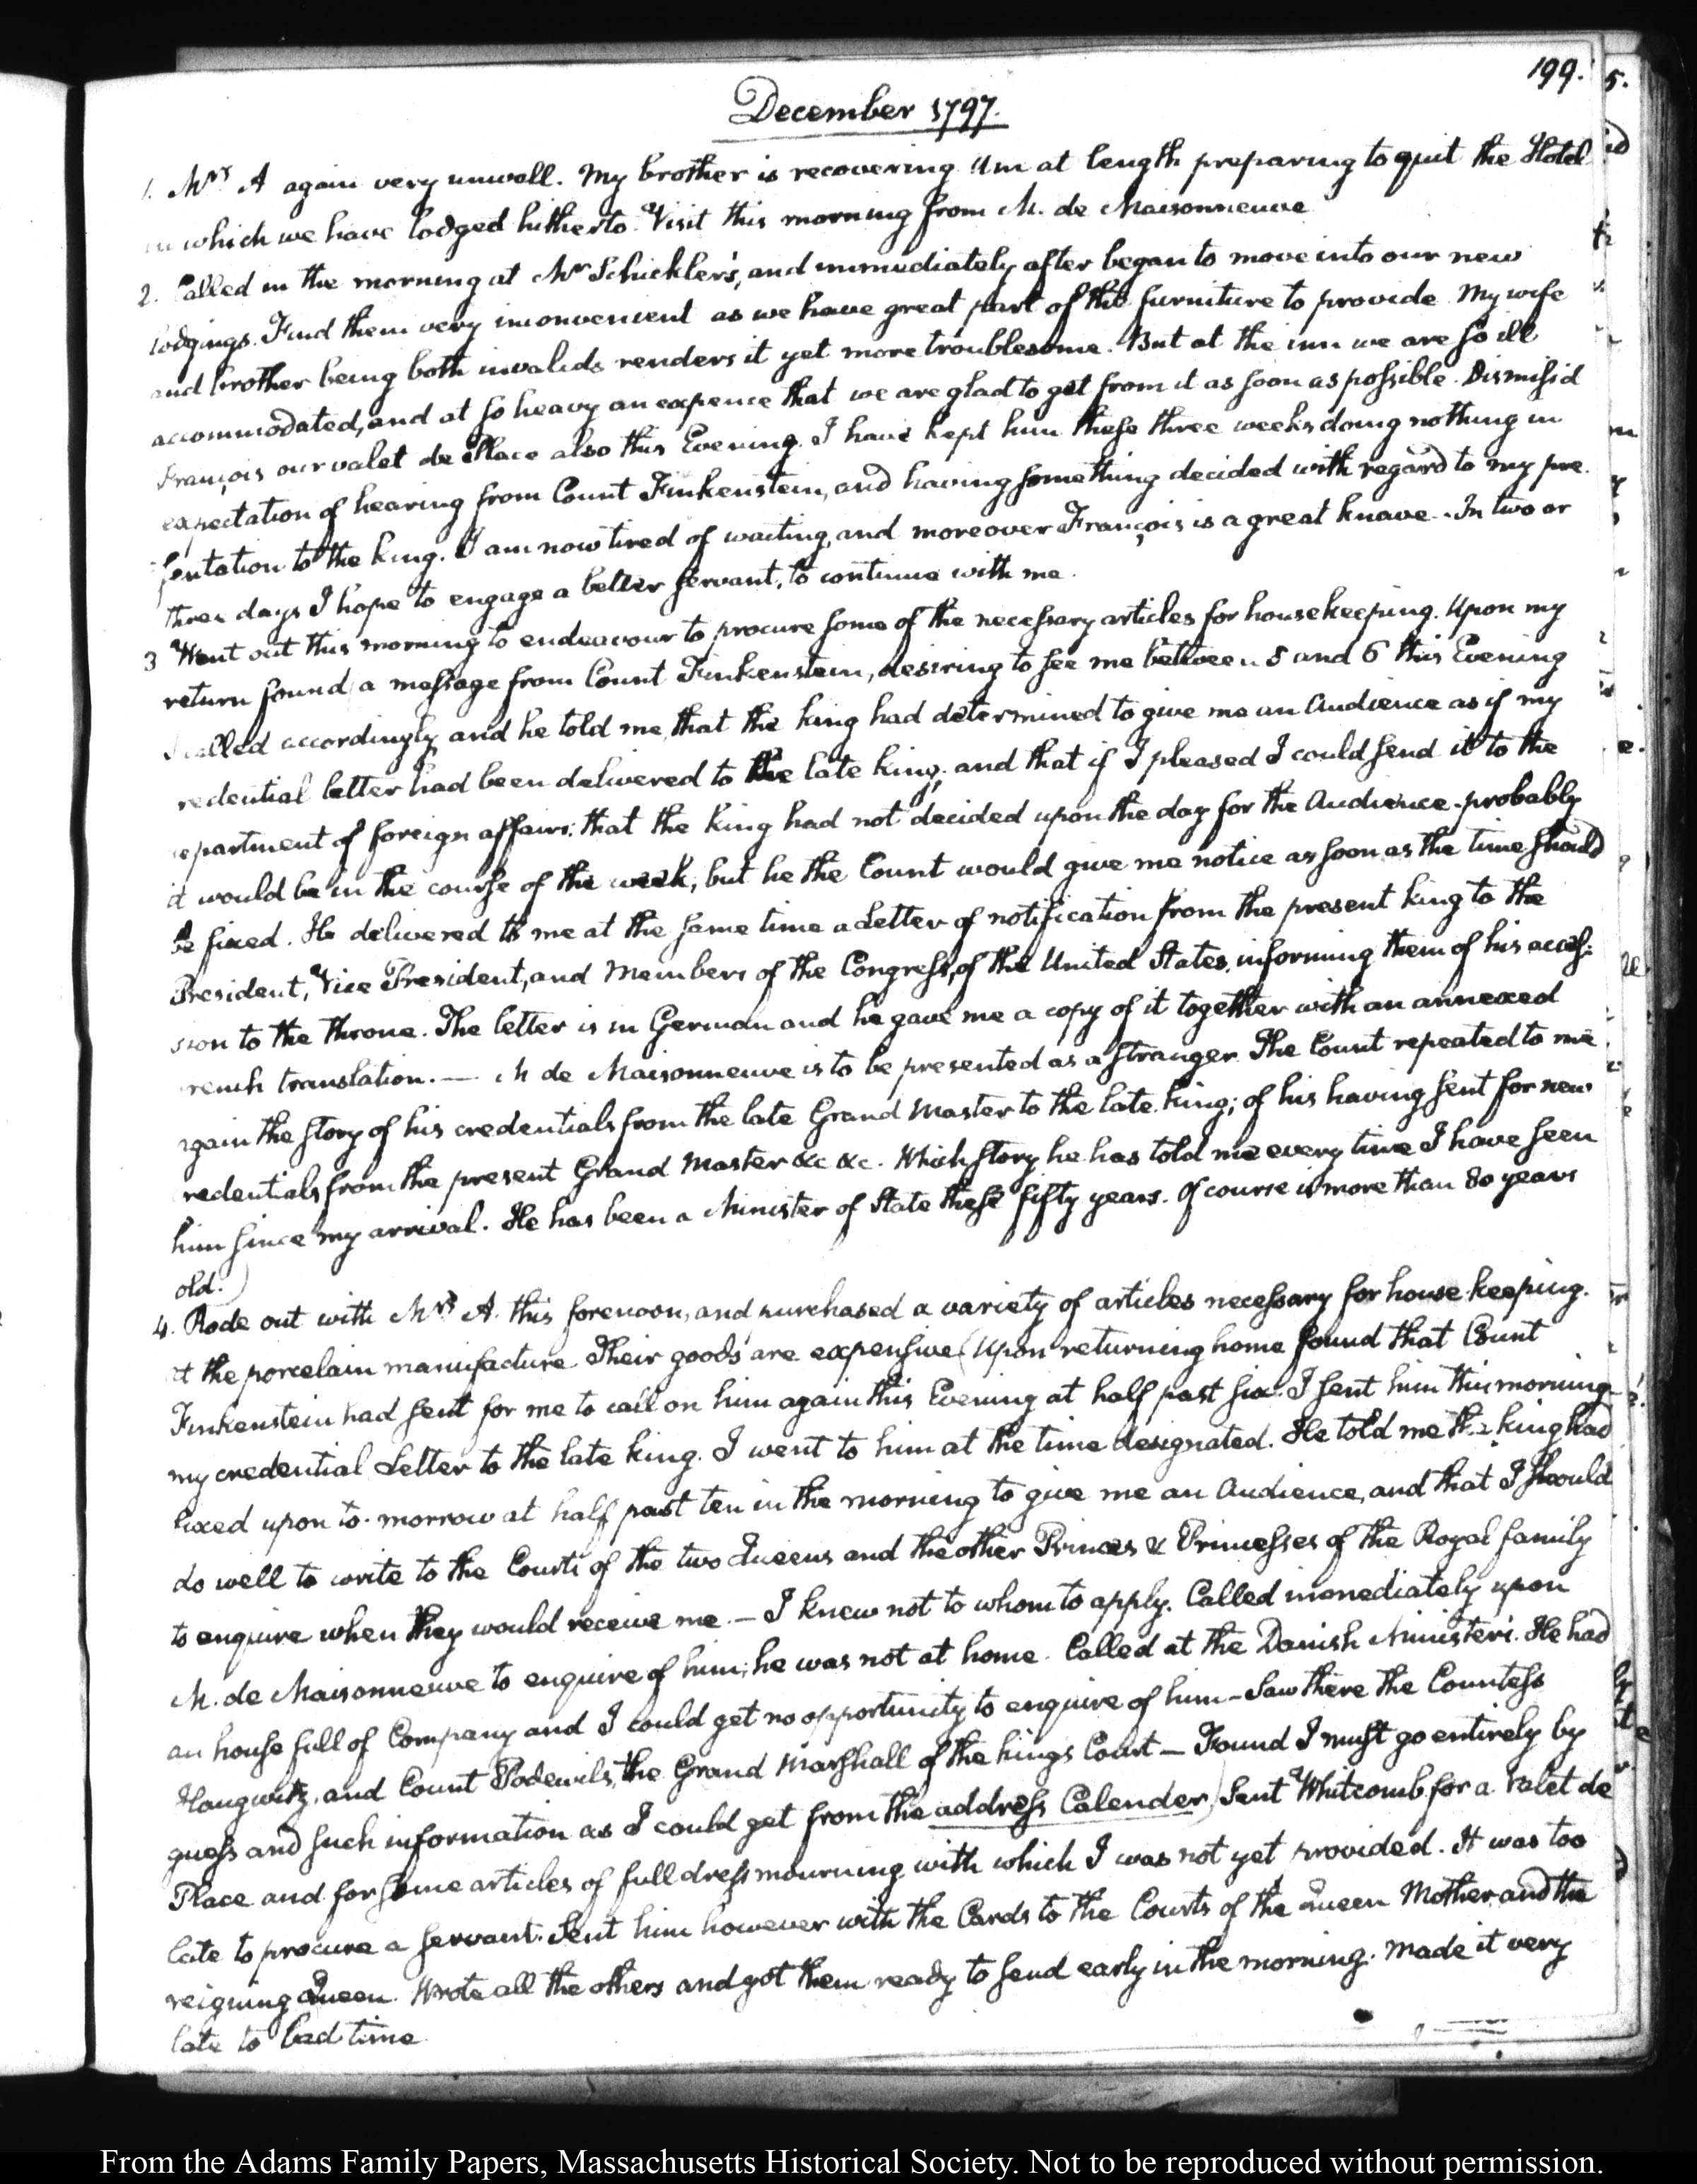 199.
December 1797.
1. Mrs A again very unwell. My brother is recovering I am at length preparing to quit the Hotel
in which we have lodged hitherto. Visit this morning from M. de Maisonneuve
2. Called in the morning at Mr Schickler's, and immediately after began to move into our new
lodgings. Find them very inconvenient as we have great part of the furniture to provide. My wife
and brother being both invalids renders it yet more troublesome. But at the inn we are so ill
accommodated, and at so heavy an expence that we are glad to get from it as soon as possible. Dismiss'd
François our valet de Place also this Evening. I have kept him these three weeks doing nothing in
expectation of hearing from Count Finkenstein, and having something decided with regard to my pre-
sentation to the king. I am now tired of waiting, and moreover François is a great knave. In two or
three days I hope to engage a better servant, to continue with me.
3 Went out this morning to endeavour to procure some of the necessary articles for housekeeping. Upon my
return found a message from Count Finkenstein, desiring to see me between 5 and 6 this Evening
I called accordingly and he told me, that the king had determined to give me an Audience as if my
credential letter had been delivered to the late king; and that if I pleased I could send it to the
department of foreign affairs; that the king had not decided upon the day for the Audience. probably
it would be in the course of the week, but he the Count would give me notice as soon as the time should
be fixed. He delivered to me at the same time a Letter of notification from the present king to the
President, Vice President, and Members of the Congress, of the United States, informing them of his acces-
sion to the throne. The letter is in German and he gave me a copy of it together with an annexed
French translation. — M de Maisonneuve is to be presented as a stranger. The Count repeated to me
again the story of his credentials from the late Grand Master to the late king; of his having sent for new
credentials from the present Grand Master &c &c. Which story he has told me every time I have seen
him since my arrival. He has been a Minister of State these fifty years. Of course is more than 80 years
old.)
4. Rode out with Mrs A. this forenoon, and purchased a variety of articles necessary for house-keeping.
at the porcelain manufacture. Their goods are expensive (Upon returning home found that Count
Finkenstein had sent for me to call on him again this Evening at half past six. I sent him this morning
my credential Letter to the late king. I went to him at the time designated. He told me the king had
fixed upon to-morrow at half past ten in the morning to give me an Audience, and that I should
do well to write to the Courts of the two Queens and the other Princes & Princesses of the Royal family
to enquire when they would receive me. — I knew not to whom to apply. Called immediately upon
M. de Maisonneuve to enquire of him; he was not at home. Called at the Danish Ministers. He had
an house full of Company and I could get no opportunity to enquire of him — Saw there the Countess
Haugwitz, and Count Podewils, the Grand Marshall of the kings Court — Found I must go entirely by
guess and such information as I could get from the address Calender) Sent Whitcomb for a valet de
Place and for some articles of full dress mourning with which I was not yet provided. It was too
late to procure a servant. Sent him however with the Cards to the Courts of the Queen Mother and the
reigning Queen. Wrote all the others and got them ready to send early in the morning. Made it very
late to bed time
From the Adams Family Papers, Massachusetts Historical Society. Not to be reproduced without permission.